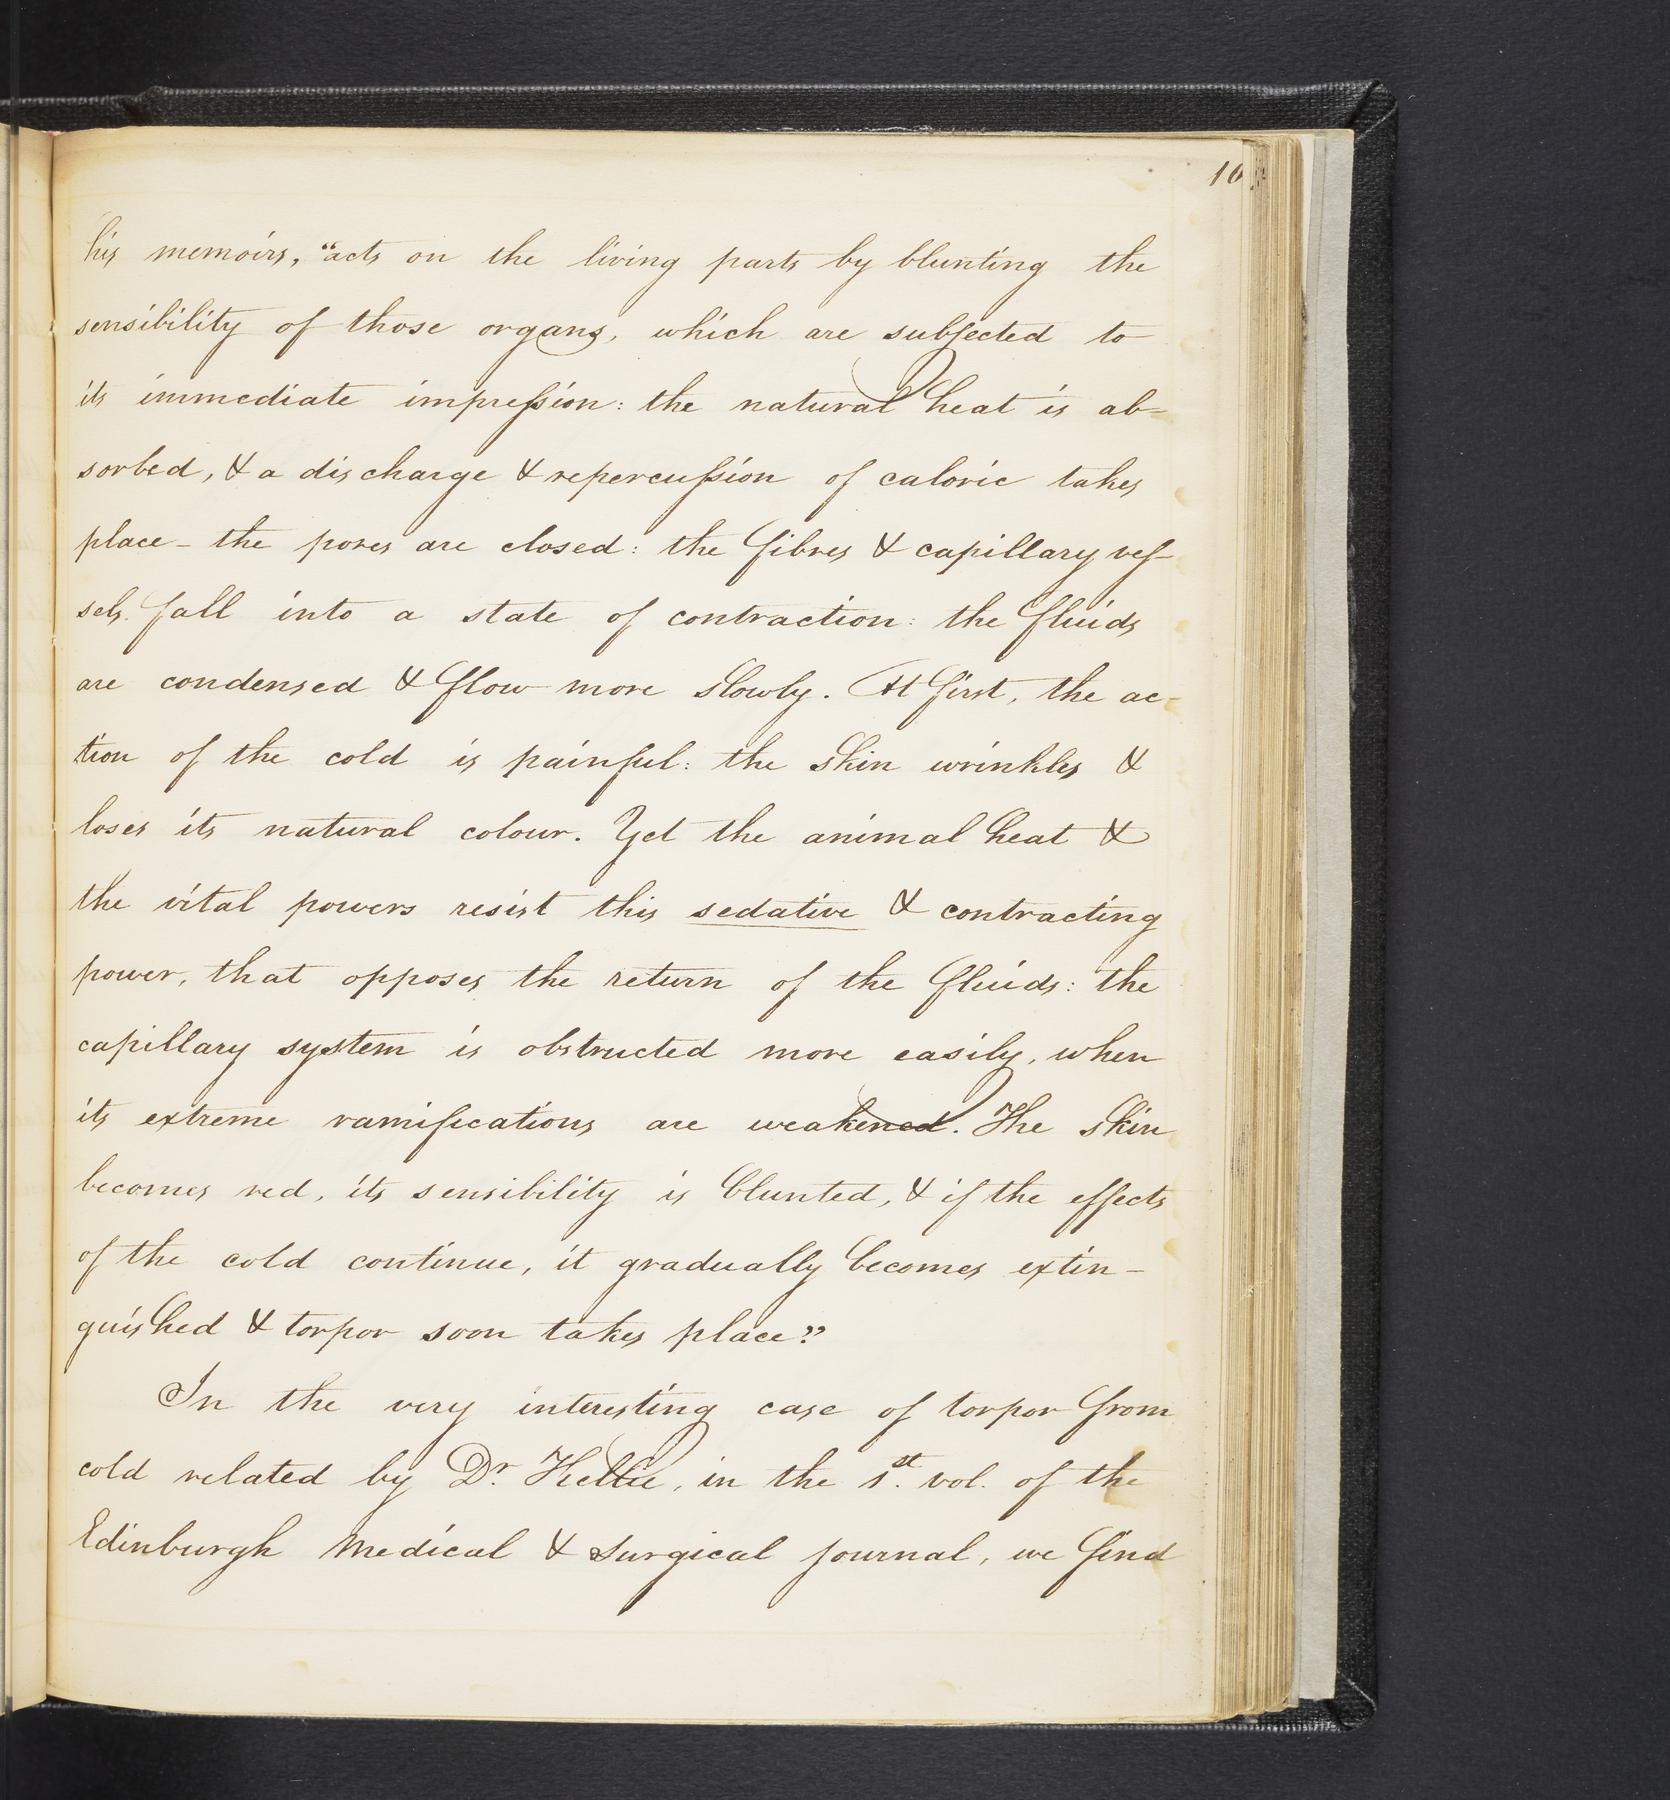 16
his memoirs, "acts on the living parts by blunting the
sensibility of those organs, which are subjected to
its immediate impression: the natural heat is ab=
sorbed, & a discharge & repercussion of caloric takes
place - the pores are closed: the fibres & capillary ves-
sels. fall into a state of contraction: the fluids
are condensed & flow more slowly. At first, the ac-
tion of the cold is painful: the skin wrinkles &
loses its natural colour. Yet the animal heat &
the vital powers resist this sedative & contracting
power, that opposes the return of the fluids: the
capillary system is obstructed more easily, when
its extreme ramifications are weakened. The skin
becomes red, its sensibility is blunted, & if the effects
of the cold continue, it gradually becomes extin-
guished & torpor soon takes place"
In the very interesting case of torpor from
cold related by Dr. Kellie, in the 1st. vol. of the
Edinburgh Medical & Surgical journal, we find